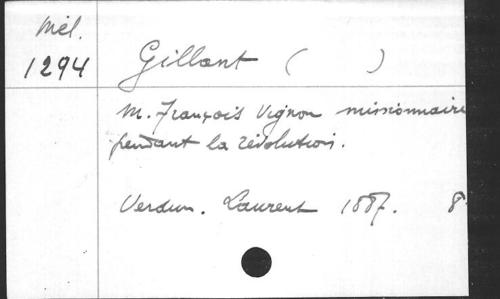 Mél.
1294
Gillant ( )
M. François Vignon missionnaire
pendant la révolution.
Verdun. Laurent 1887. 8